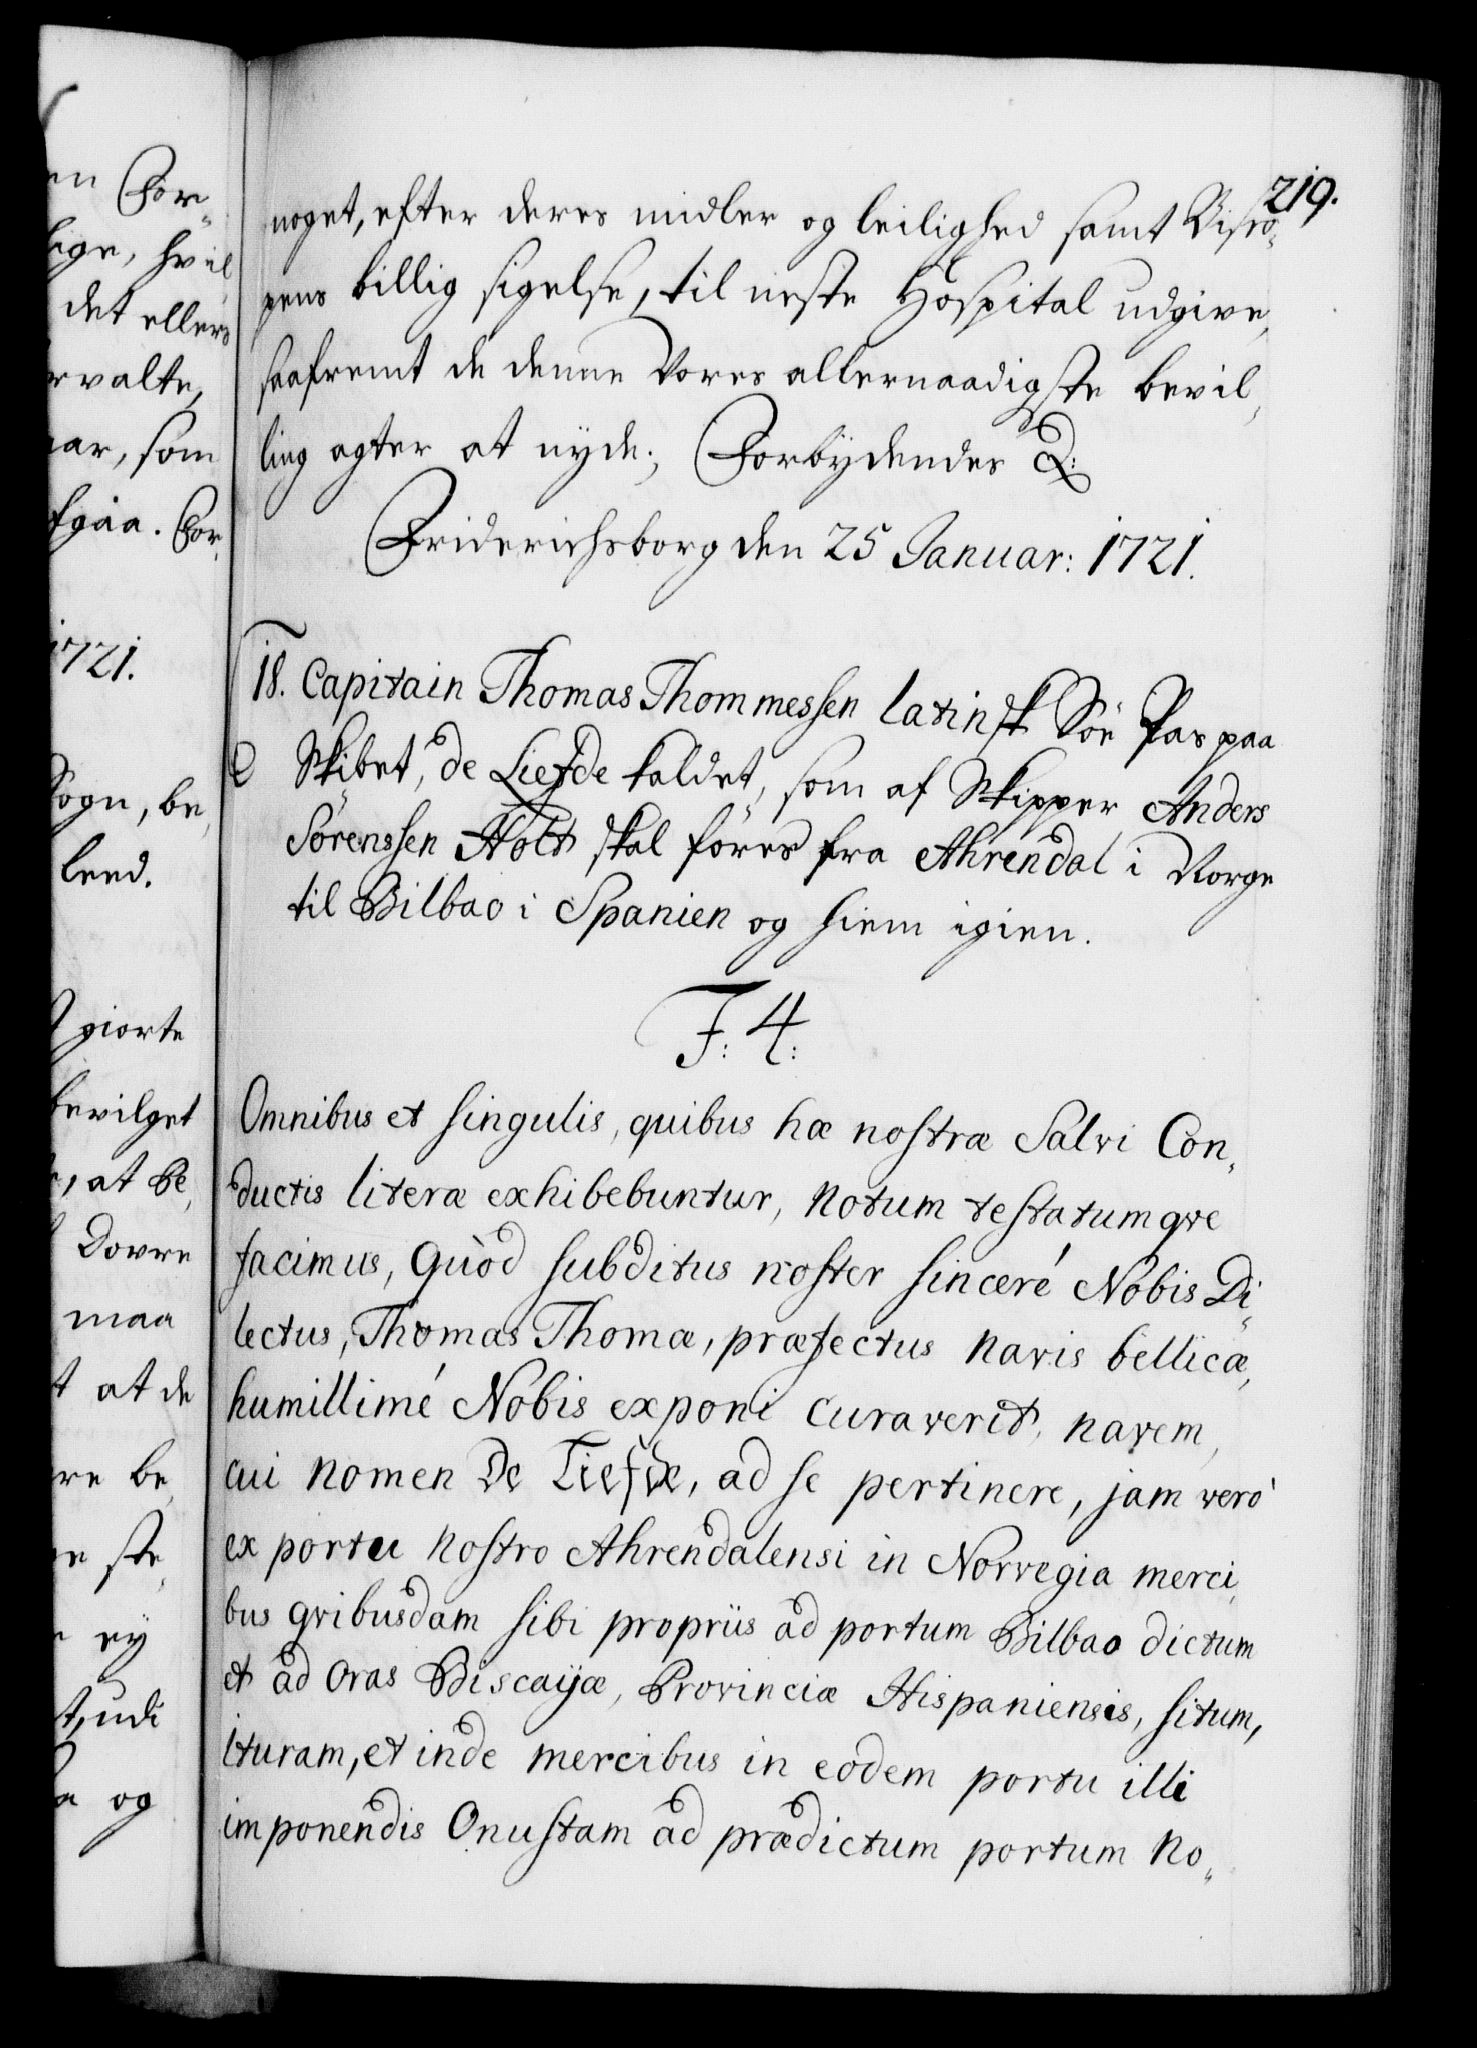 en For-
lige, hvil
det ellers
rvalte,
aar, som
fgaa. For,
1721.
Sogn, be,
leed.
giorte
bevilget
, at Be,
Dovre
maa
t at de
re be,
ste,
ey
st, udi
og
219.
noget, efter deres midler og leilighed samt Bisco-
pens billig sigelse, til neste Hospital udgive,
saafremt de denne Vores allernaadigste bevil,
ling agter at nyde; Forbydendes &:
Friderichsborg den 25 Januar: 1721.
18. Capitain Thomas Thommessen latinsk Söe Pas paa
Skibet, de Liefde kaldet, som af Skipper Anders
Sörenssen Holt skal föres fra Ahrendal i Norge
til Bilbao i Spanien og hiem igien.
F: 4:
Omnibus et singulis, quibus hæ nostræ Salvi Con,
ductis literæ exhibebuntur, notum testatumqve
facimus, Quòd subditus noster sinceré Nobis Di-
lectus, Thomas Thomæ, præfectus navis bellicæ,
humillimé Nobis exponi curaverit, navem,
cui nomen De Liefde, ad se pertinere, jam verò
ex portu nostro Ahrendalensi in Norvegia merci,
bus qvibusdam sibi propriis ad portum Bilbao dictum
et ad Oras Biscaijæ, Provinciæ Hispaniensis, situm,
ituram, et inde mercibus in eodem portu illi
imponendis Onustam ad prædictum portum No-